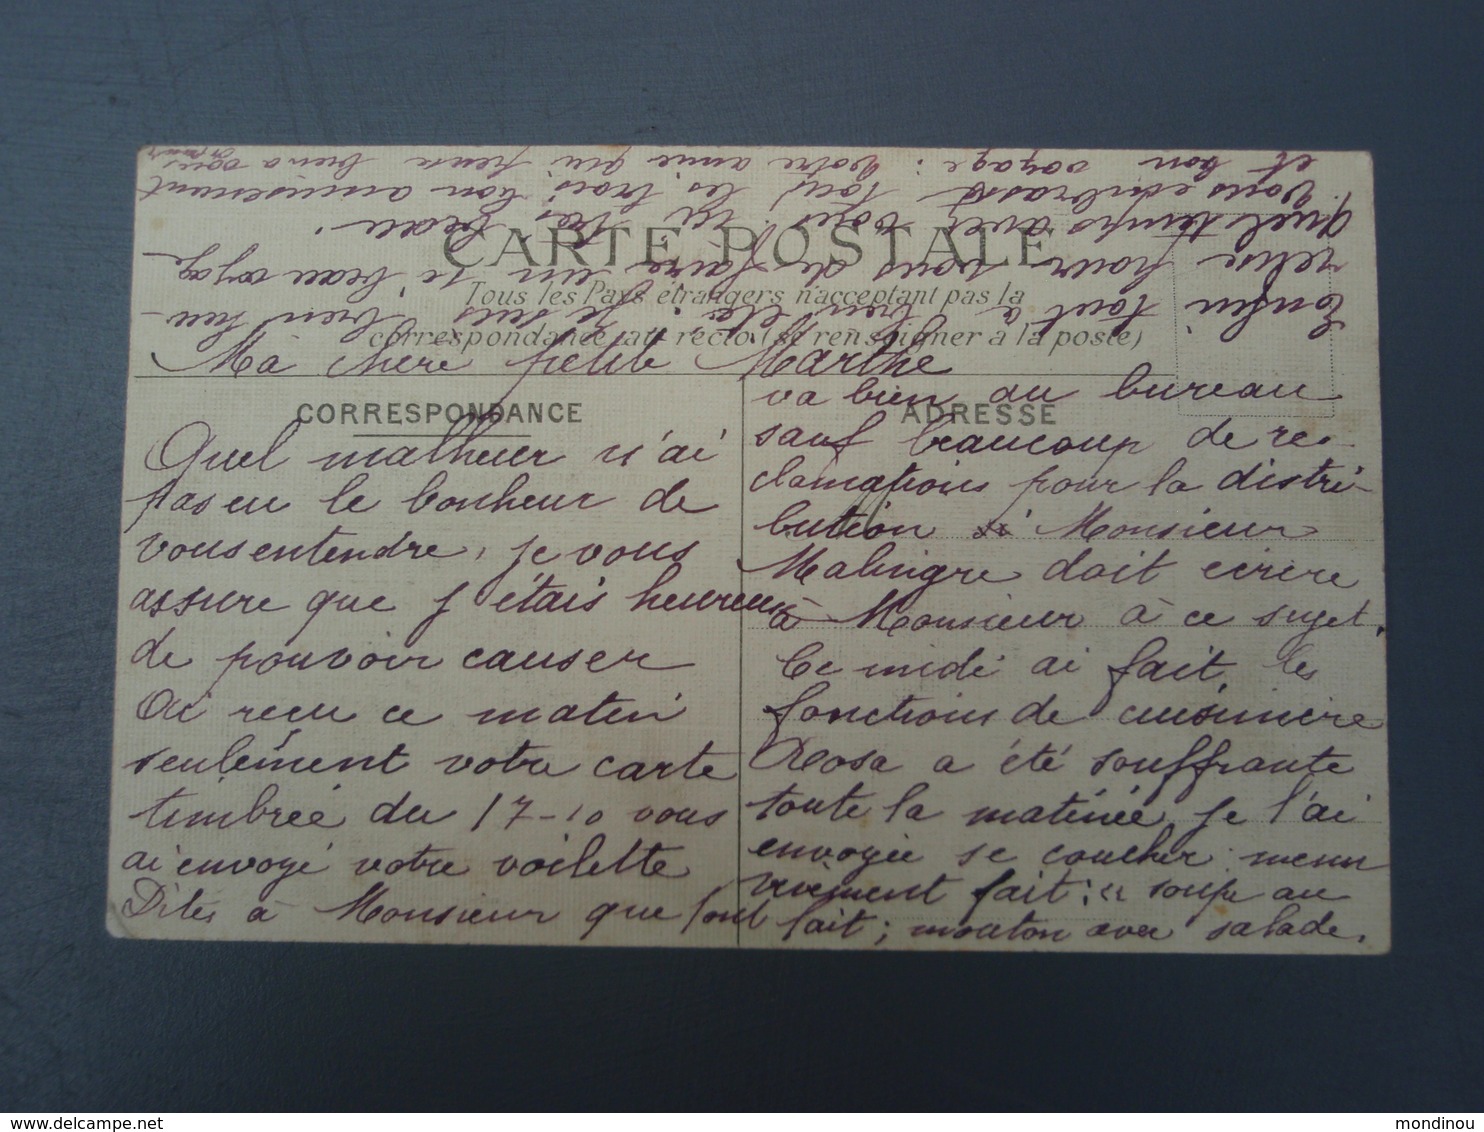 CARTE POSTALE
Tous les Pays étrangers n'acceptant pas la
correspondance au recto (se renseigner à la poste)
Ma chère petite Marthe
CORRESPONDANCE
Quel malheur n'ai
pas eu le bonheur de
vous entendre, je vous
assure que j'étais heureux
de pouvoir causer
Ai reçu ce matin
seulement votre carte
timbrée du 17-10 vous
ai envoyé votre voilette
Dites à Monsieur que tout
ADRESSE
va bien au bureau
sauf beaucoup de ré-
clamations pour la distri-
bution si Monsieur
Malingre doit écrire
à Monsieur à ce sujet.
Ce midi ai fait les
fonctions de cuisinière
Rosa a été souffrante
toute la matinée je l'ai
envoyée se coucher menu
vivement fait: soupe au
lait; mouton avec salade.
Enfin tout a bien été, je suis bien heu-
reuse pour vous de faire un si beau voyage
Quel temps avez vous ici très beau.
Vous embrasse tous les trois bon amusement
et bon voyage: Votre amie qui pense bien à vous
mondinou